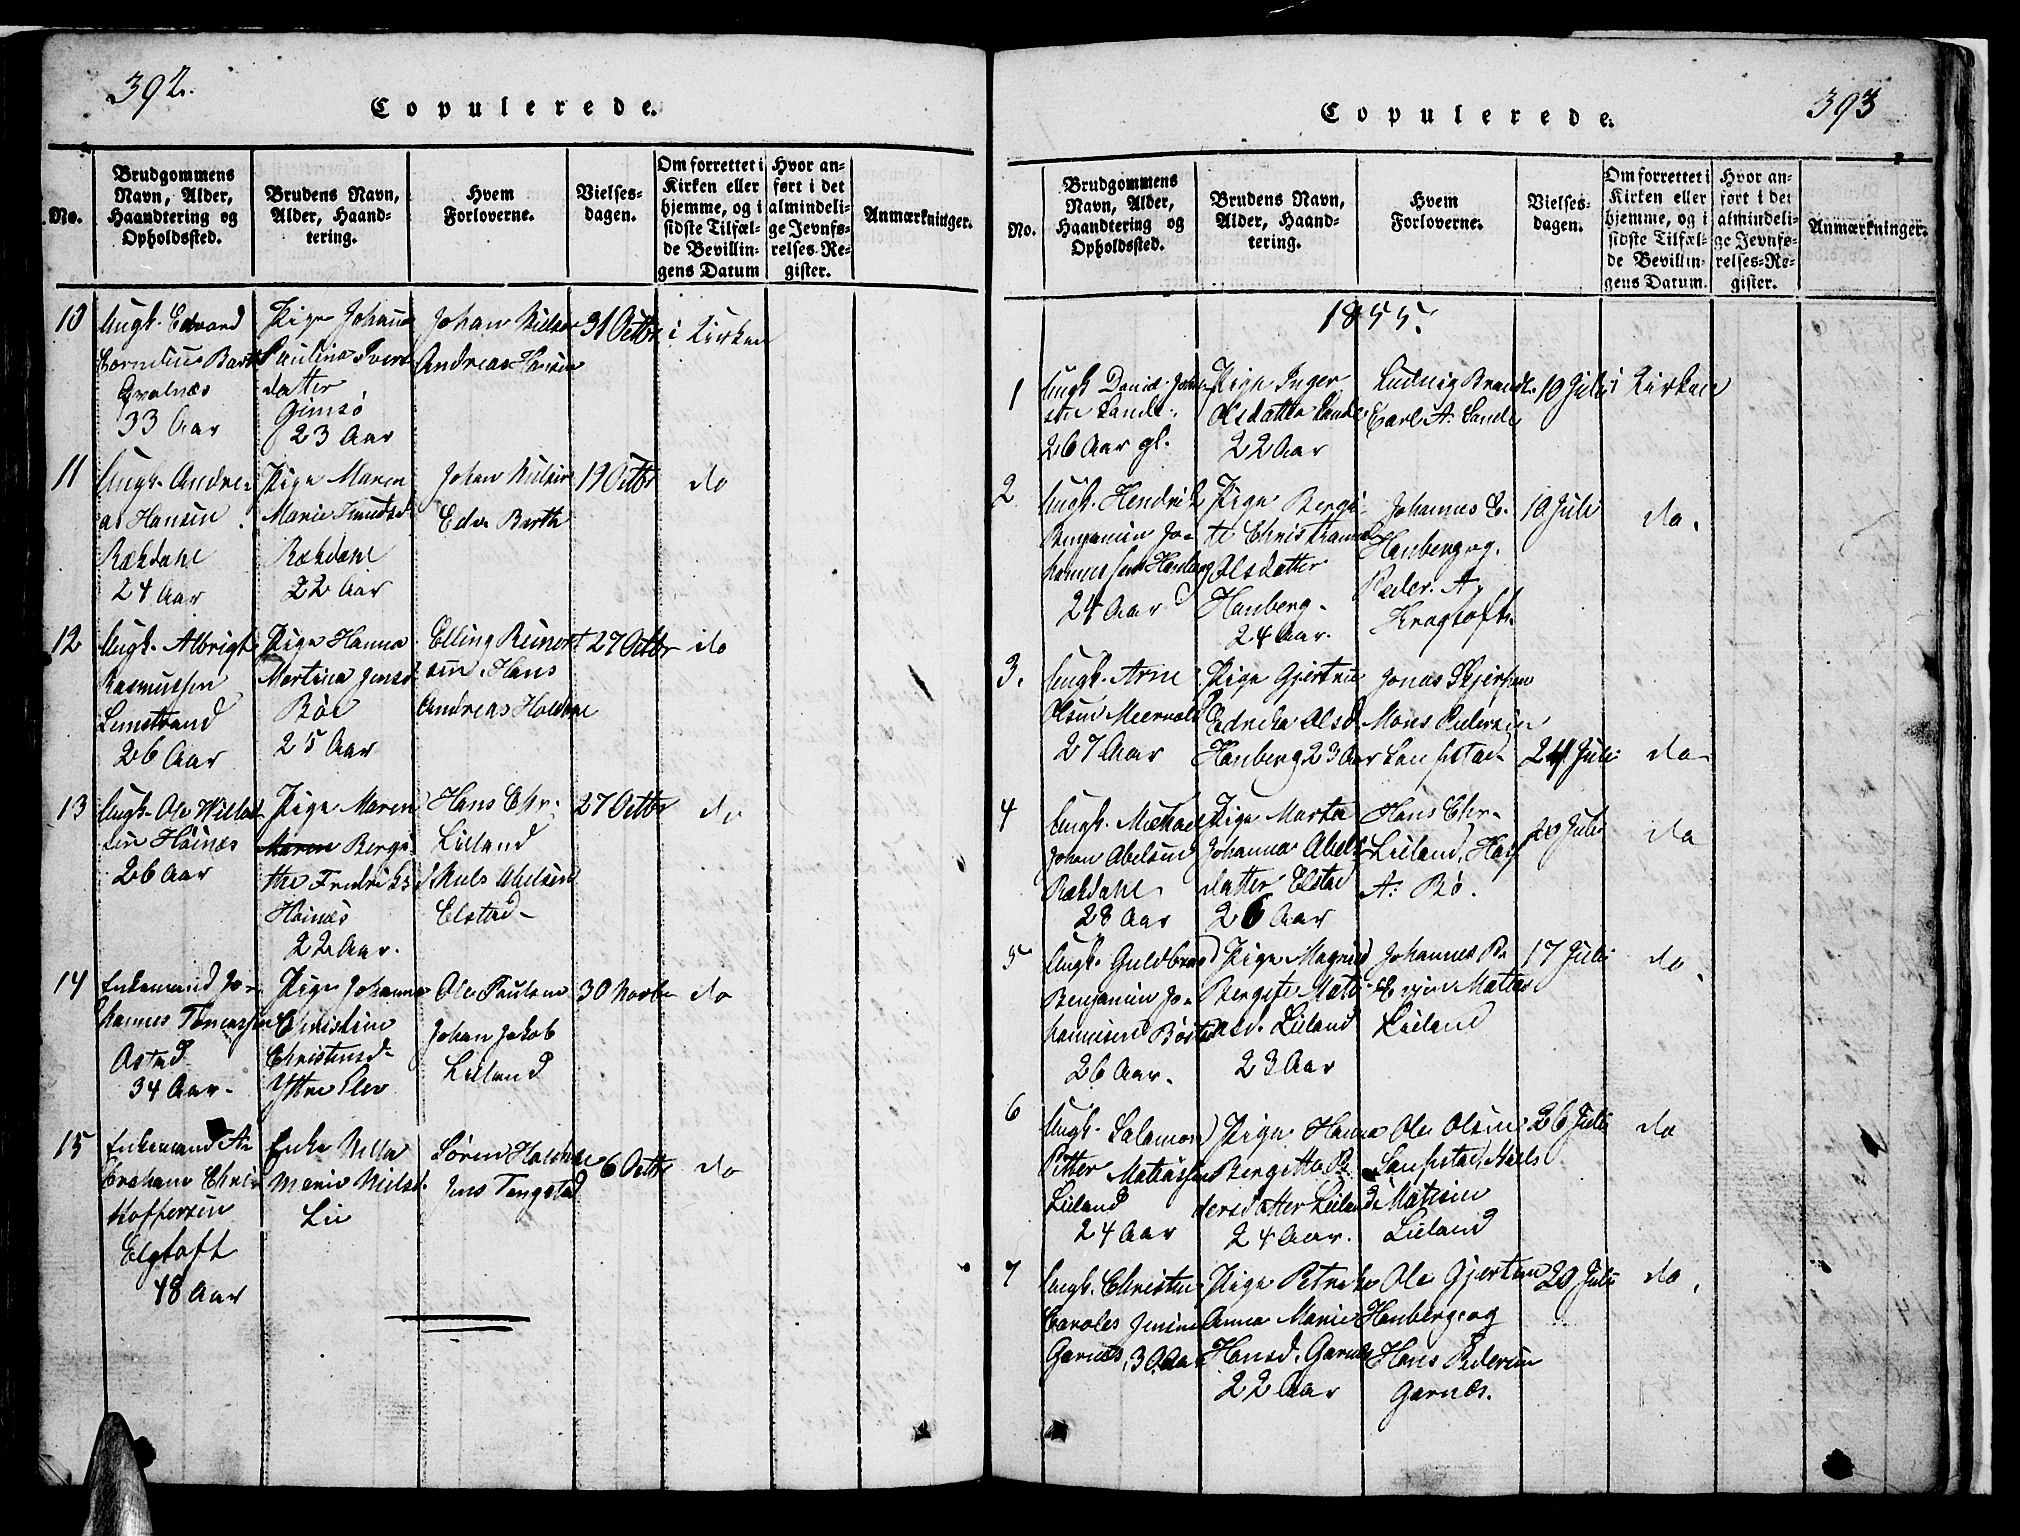 392.
Copulerede.
No.
Brudgommens Navn, Alder, Haandtering og Opholdssted.
Brudens Navn, Alder, Haandtering.
Hvem Forloverne.
Vielsesdagen.
Om forrettet i Kirken eller hjemme, og i sidste Tilfælde Bevillingens Datum
Hvor anført i det almindelige Jevnførelses-Register.
Anmærkninger.
10
Ungk. Edvard
Cornelius Barth
33 Aar
Pige Johanna
Paulina Ivers
datter
Gimsø
23 Aar
Johan Nielsen
Andreas Hansen
31 Octbr
i Kirken
11
Ungk. Andre
as Hansen
Rækdahl
24 Aar
Pige Maren
Marie Knudsd
Rækdahl
22 Aar
Johan Nielsen
Edv. Barth
19 Octbr
do
12
Ungk. Albrigt
Rasmussen
Lenstrand
26 Aar
Pige Hanna
Martina Jensd
Böe
25 Aar
Elling Reinert
sen. Hans
Andreas Holdahl
27 Octbr
do
13
Ungk. Ole Willad
sen Höinæs
26 Aar
Pige Maren
Maren Bergi
the Fredriksd
Höinæs
22 Aar.
Hans Chr.
Liland
Niels Abelsen
Elstad
27 Octbr
do
14
Enkemand Jo
hannes Tomassen
Astad
34 Aar.
Pige Johanna
Christine
Christensd
Yttre Elev
Ole Paulsen
Johan Jakob
Liland
30 Novbr
do
15
Enkemand A
braham Chri
stoffersen
Elgtoft
48 Aar
Enke Nilla
Marie Nielsd.
Lie
Søren Holdahl
Jens Tangstad
6 Octbr
do
393
Copulerede.
No.
Brudgommens Navn, Alder, Haandtering og Opholdssted.
Brudens Navn, Alder, Haandtering.
Hvem Forloverne.
Vielsesdagen.
Om forrettet i Kirken eller hjemme, og i sidste Tilfælde Bevillingens Datum.
Hvor anført i det almindelige Jevnførelses-Register.
Anmærkninger.
1855.
1
Ungk Daniel Johan
sen Sande
26 Aar gl.
Pige Inger
Olsdatter Sande
22 Aar
Ludvig Brandt
Carl A. Sande
10 Juli
i Kirken
2
Ungk. Hendrik
Benjamin Jo
hannessen Hanberg
24 Aar
Pige Bergi
te Christiana
Olsdatter
Hanberg.
24 Aar.
Johannes E.
Hanberg og
Peder A.
Kragtoft.
10 Juli
do.
3.
Ungk. Arne
Olsen Meervold
27 Aar
Pige Gjertrue
Edricka Olsd
Hanberg 23 Aar
Jonas Skjerpen
Mons Pedersen
Laupstad
24 Juli
do
4
Ungk. Michael
Johan Abelsen
Rækdahl
28 Aar
Pige Marta
Johanna Abels
datter Elstad
26 Aar
Hans Chr.
Liland, Half
A. Bö.
20 Juli
do
5
Ungk. Guldbrand
Benjamin Jo
hannesen Böstad
26 Aar.
Pige Magrid
Bergite Mati
asd. Liland
23 Aar
Johannes P.
Liland
17 Juli
do
6
Ungk. Salamon
Petter Matiassen
Liland
24 Aar
Pige Hanna
Bergitta Pe
dersdatter Liland
24 Aar.
Ole Olsen
Laupstad, Niels
Matisen
Liland
26 Juli
do
7
Ungk. Christen
Caroles Jensen
Garnæs, 30 Aar
Pige Petricke
Anna Marie
Hansd. Garnæs
22 Aar
Ole Gjertsen
Hanberg og
Hans Pedersen
Garnæs.
20 Juli
do